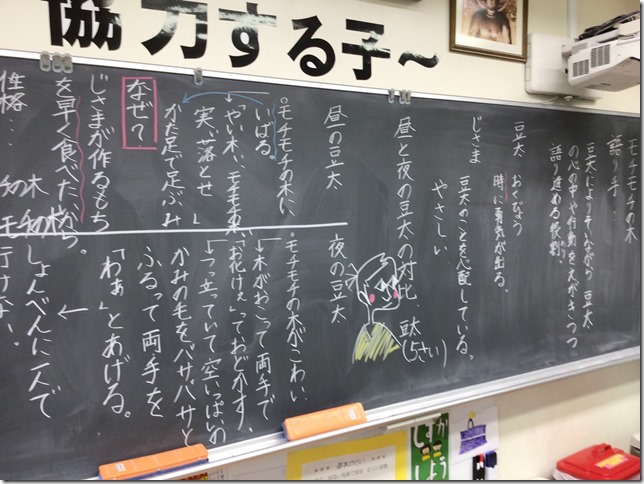 協力する子〜
モチモチの木
語り手…
豆太によりそいながら豆太
の心の中や行動をえがきつつ
語り進める役割。
豆太 おくびょう
時に勇気が出る。
じさま 豆太のことを心配している。
やさしい
昼と夜の豆太の対比 豆太(5さい)
昼の豆太
。モチモチの木に
いばる。
↓「やい木ぃ、モチモチの木ぃ、
実ぃ落とせぇ」
かた足で足ぶみ
なぜ?
じさまが作るもち
を早く食べたいから。
性格…
夜の豆太
。モチモチの木がこわい。
↓木がおこって両手で、
「お化けぇ」っておどかす。
↓つっ立っていて空いっぱいの
かみの毛をバサバサと
ふるって両手を
「わぁ」とあげる。
↓
しょんべんに一人で
行けない。